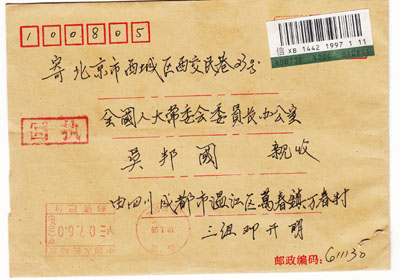 100805
信 XB 1442 1997 1 11
寄 北京市西城区西交民巷23号
全國人大常委会委員长办公室
回执
吴邦國 親收
由四川成都市温江区萬春鎮万春村
三组邓开明
邮政编码：611138